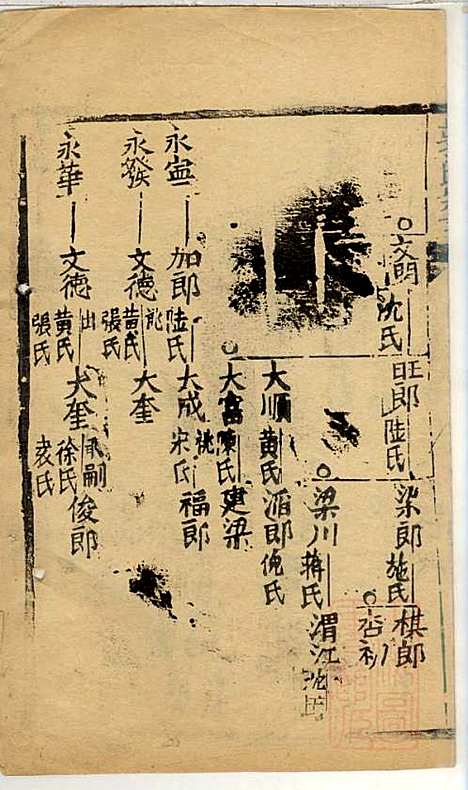 文明 沈氏
旺郎 陆氏
梁郎 施氏
棋郎
杏初
梁川 蒋氏
渭江 沈氏
大順 黃氏
酒郎 倪氏
大富 陳氏
建梁
永寍
加郎 陆氏
大成 祧 宋氏
福郎
永發
文德 祧 黃氏 張氏
大奎
永華
文德 出 黃氏 張氏
大奎 承嗣 徐氏 袁氏
俊郎